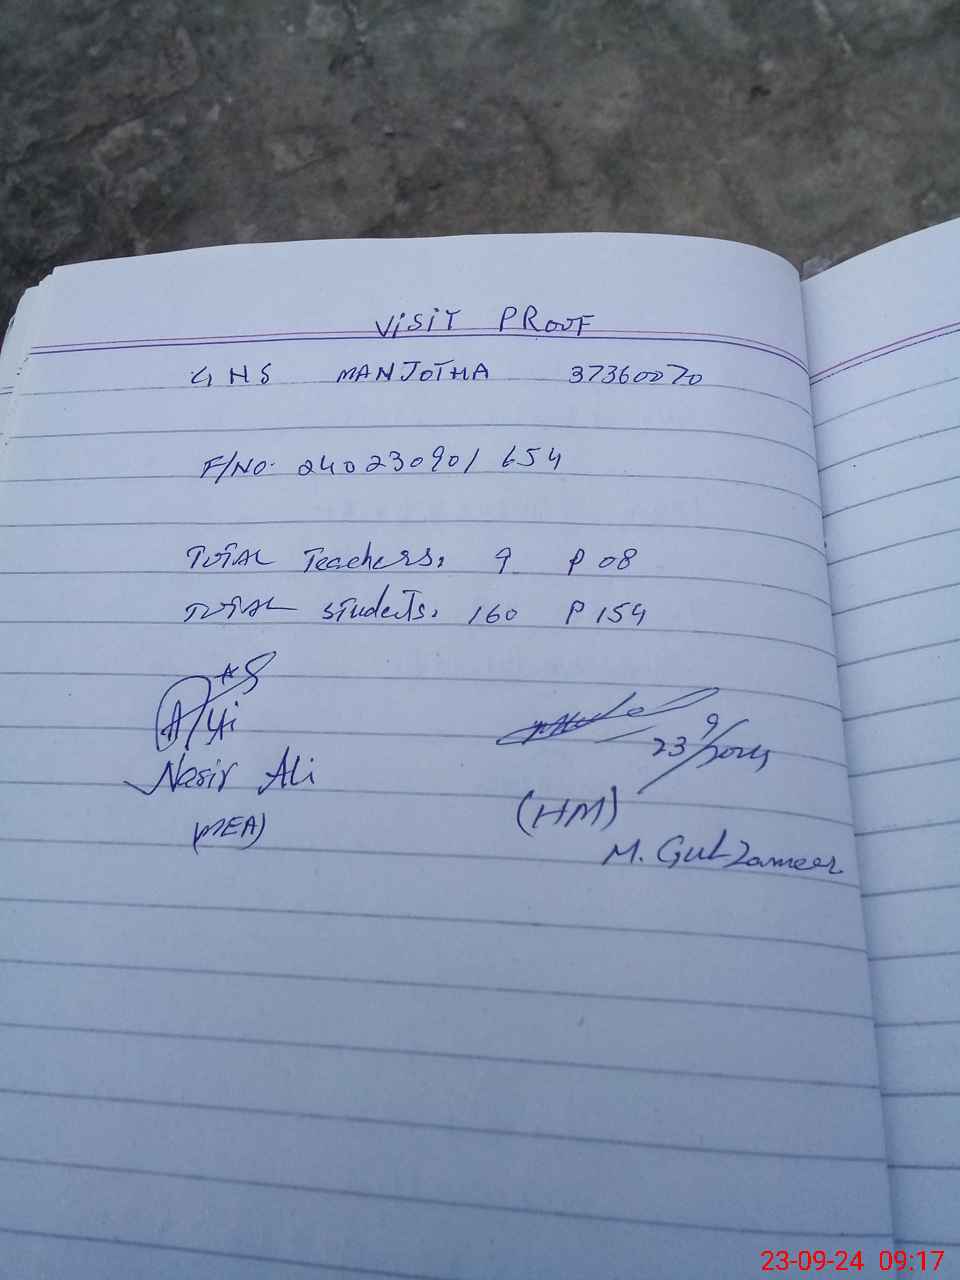 VISIT PROOF
GHS MANJOTHA 37360070
F/NO. 240230901654
TOTAL Teachers: 9 P 08
TOTAL students: 160 P 154
Nasir Ali
(MEA)
23/9/2024
(HM)
M. Gul Zameer
23-09-24 09:17